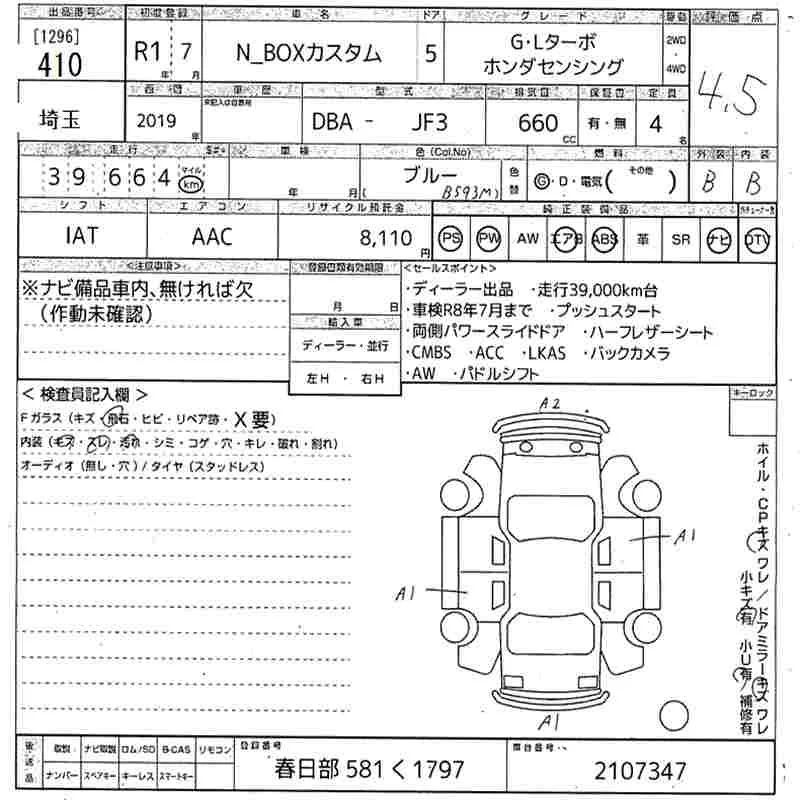 出品番号 初度登録 車名 ドア グレード 駆動 評価点
[1296]
410 R1 年 7 月 N_BOXカスタム 5 G・Lターボ ホンダセンシング 2WD ・ 4WD 4.5
西暦 車歴 型式 排気量 保証書 定員
埼玉 2019 年 未記入は自家用 DBA - JF3 660 CC 有・無 4 名
走行 車検 色(Col.No) 燃料 外装 内装
39,664 マイル km 年 月 ブルー (B593M) 色替 G・D・電気 (その他) B B
シフト エアコン リサイクル預託金 純正装備品
IAT AAC 8,110 円 PS PW AW エアB ABS 革 SR ナビ DTV
<注意事項> 登録書類有効期限 <セールスポイント>
※ナビ備品車内、無ければ欠
(作動未確認)
月 日
輸入車
ディーラー・並行
左H ・ 右H
・ディーラー出品 ・走行39,000km台
・車検R8年7月まで ・プッシュスタート
・両側パワースライドドア ・ハーフレザーシート
・CMBS ・ACC ・LKAS ・バックカメラ
・AW ・パドルシフト
<検査員記入欄>
Fガラス(キズ・飛石・ヒビ・リペア跡・X要)
内装(キズ・スレ・汚れ・シミ・コゲ・穴・キレ・破れ・割れ)
オーディオ(無し・穴)/タイヤ(スタッドレス)
キーロック
A2
A1
A1
A1
ホイル・CPキズワレ/ドアミラーキズワレ
小キズ有 小U有/補修有
後送品 取説 ナビ取説 ロム/SD B-CAS リモコン
ナンバー スペアキー キーレス スマートキー
登録番号 春日部 581 く 1797
車台番号 2107347